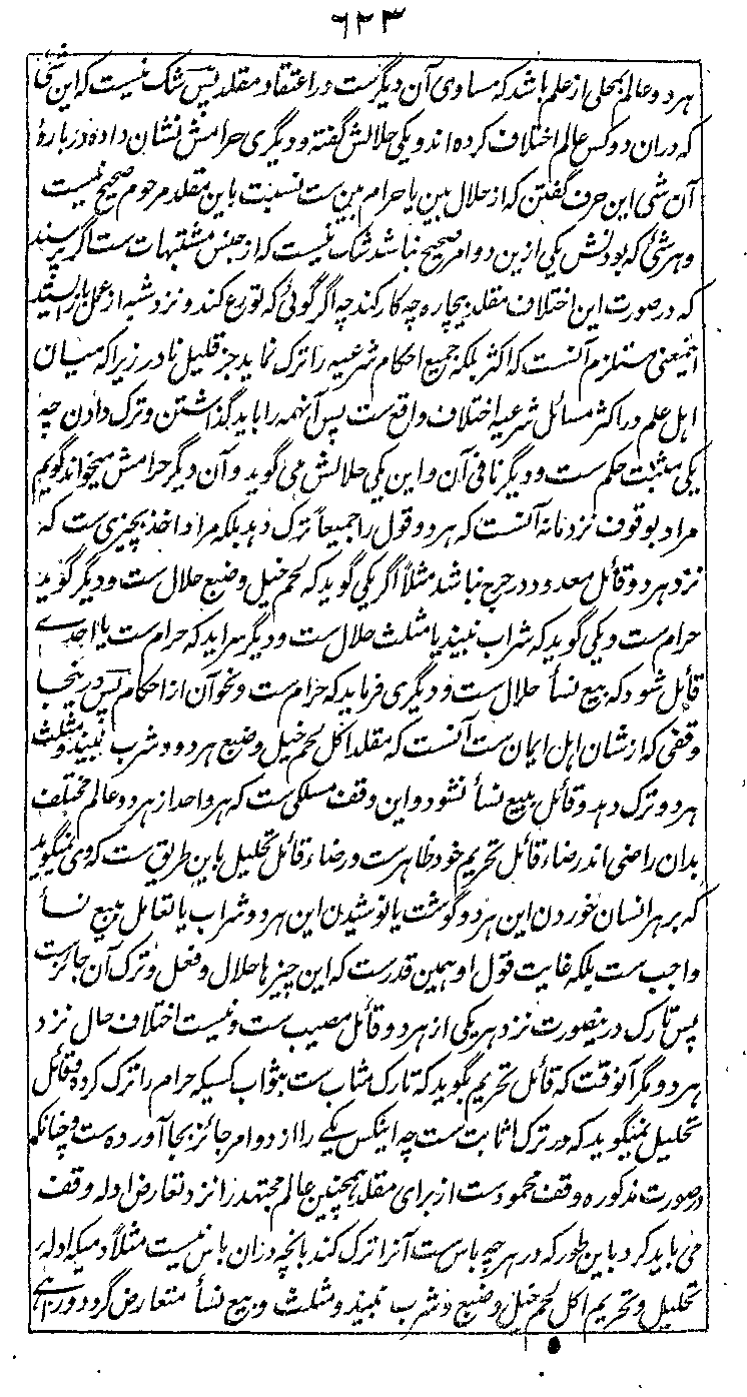 ۶۲۳
هر دو عالم بمحلی از علم باشد که مساوی آن دیگرست در اعتقاد مقلد پس شک نیست که این شئ
که دران دو کس عالم اختلاف کرده اند و یکی حلالش گفته و دیگری حرامش نشان داده دربارهٔ
آن شی این حرف گفتن که از حلال بین یا حرام بین ست نسبت باین مقلد مرحوم صحیح نیست
و هر شئ که بودنش یکی ازین دو امر صحیح نباشد شک نیست که از جنس مشتبهات ست اگر پرسند
که در صورت این اختلاف مقلد بیچاره چه کار کند چه اگر گوئی که تورع کند و نزد شبه از عمل باز ایستد
اینمعنی مستلزم آنست که اکثر بلکه جمیع احکام شرعیه را ترک نماید جز قلیل نادر زیرا که میان
اهل علم در اکثر مسائل شرعیه اختلاف واقع ست پس آنهمه را باید گذاشتن و ترک دادن چه
یکی مثبت حکم ست و دیگر نافی آن و این یکی حلالش می گوید و آن دیگر حرامش میخواند گویم
مراد بوقوف نزد ما نه آنست که هر دو قول را جمیعاً ترک دهد بلکه مراد اخذ بچیزی ست که
نزد هر دو قائل معدود در حرج نباشد مثلاً اگر یکی گوید که لحم خیل و ضبع حلال ست و دیگر گوید
حرام ست و یکی گوید که شراب نبیذ یا مثلث حلال ست و دیگر سراید که حرام ست یا احدے
قائل شود که بیع نسأ حلال ست و دیگری فرماید که حرام ست و نحو آن از احکام پس درینجا
وقفی که از شان اهل ایمان ست آنست که مقلد اکل لحم خیل و ضبع هر دو و شرب نبیذ و مثلث
هر دو ترک دهد و قائل ببیع نسأ نشود و این وقف مسلکی ست که هر واحد از هر دو عالم مختلف
بدان راضی اند رضاء قائل تحریم خود ظاهرست و رضاء قائل تحلیل باین طریق ست که وی نمیگوید
که بر هر انسان خوردن این هر دو گوشت یا نوشیدن این هر دو شراب یا تعامل ببیع نسأ
واجب ست بلکه غایت قول او همین قدرست که این چیزها حلال و فعل و ترک آن جائزست
پس تارک درینصورت نزد هر یکی از هر دو قائل مصیب ست و نیست اختلاف حال نزد
هر دو مگر آنوقت که قائل تحریم بگوید که تارک مثاب ست بثواب کسیکه حرام را ترک کرده و قائل
تحلیل نمیگوید که در ترک اثابت ست چه اینکس یکے را از دو امر جائز بجا آورده ست و چنانکه
در صورت مذکوره وقف محمود ست از برای مقلد همچنین عالم مجتهد را نزد تعارض ادله وقف
می باید کرد باین طور که در هر چه باس ست آنرا ترک کند بانچه دران باس نیست مثلاً دمیکه ادله
تحلیل و تحریم اکل لحم خیل و ضبع و شرب نبیذ و مثلث و بیع نسأ متعارض گردد